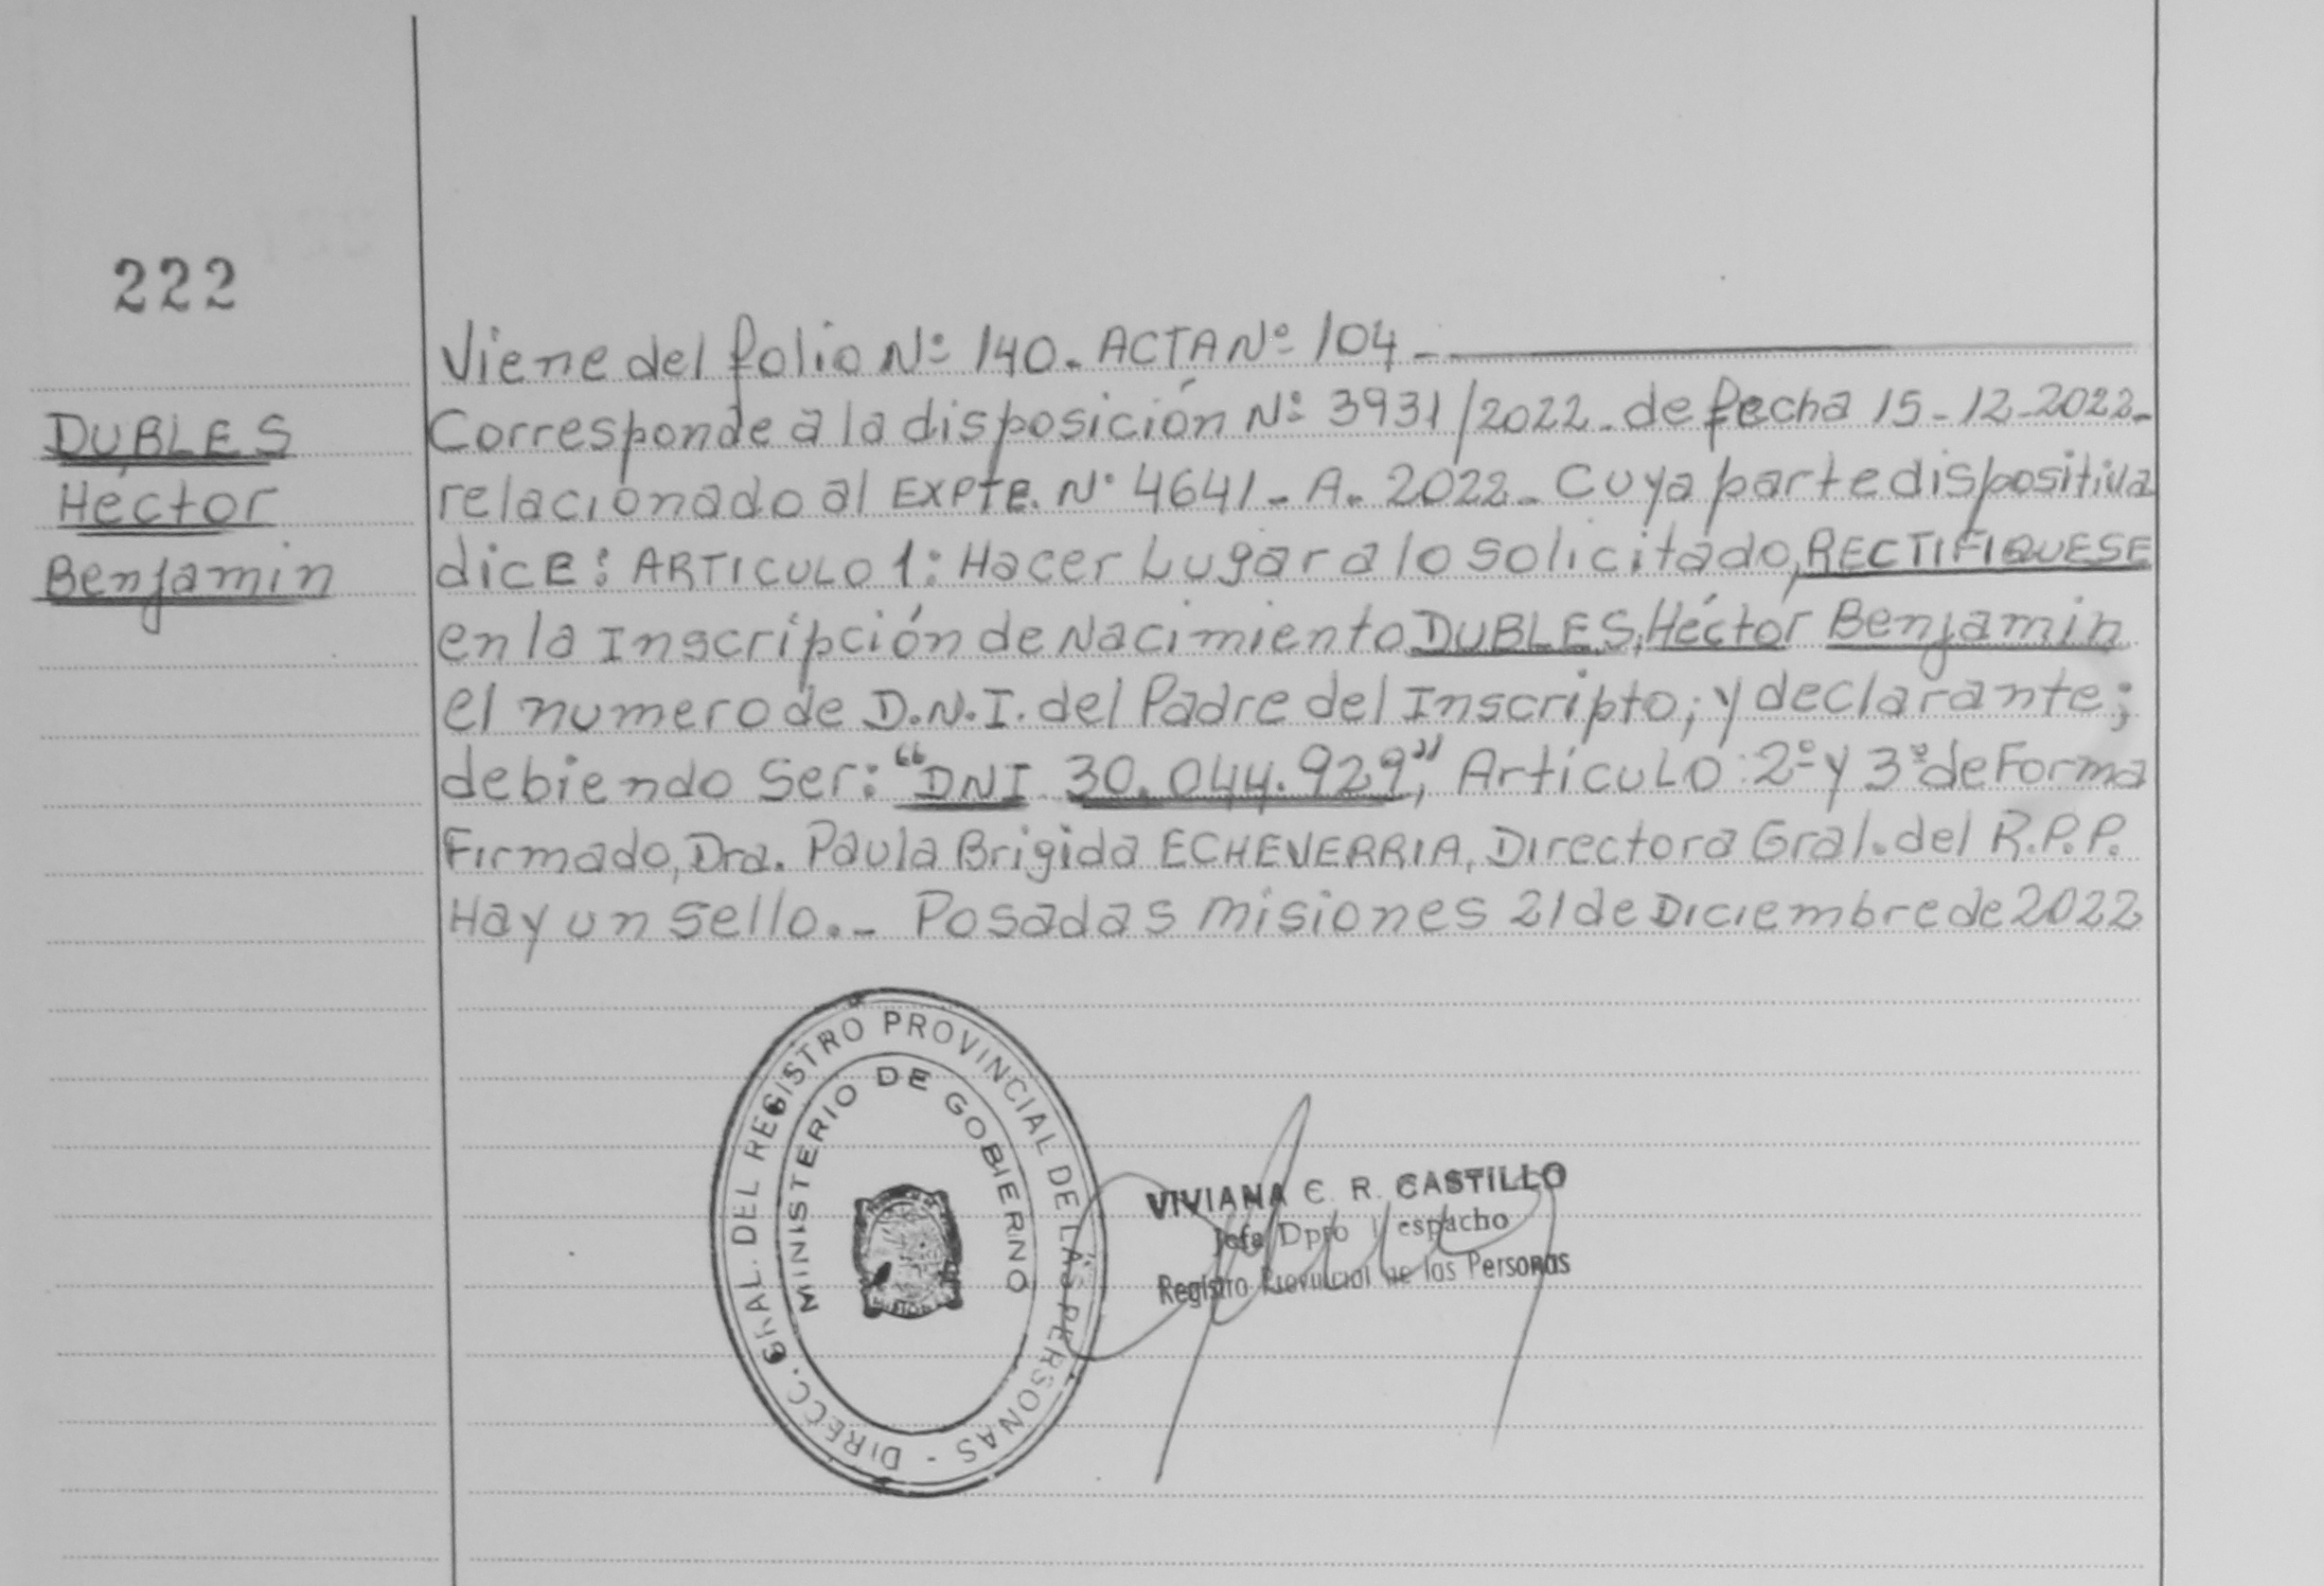 222
DUBLES
Héctor
Benjamin
Viene del folio Nº 140. ACTA Nº 104 -
Corresponde a la disposición Nº 3931/2022. de fecha 15-12-2022-
relacionado al EXPTE. Nº 4641- A. 2022- Cuya parte dispositiva
dice: ARTICULO 1: Hacer Lugar a lo solicitado, RECTIFIQUESE
en la Inscripción de Nacimiento DUBLES, Héctor Benjamin
el numero de D.N.I. del Padre del Inscripto; y declarante;
debiendo Ser: "DNI 30.044.929", Artículo: 2º y 3º de Forma
Firmado, Dra. Paula Brigida ECHEVERRIA, Directora Gral. del R.P.P.
Hay un sello.- Posadas Misiones 21 de Diciembre de 2022
DIRECC. GRAL. DEL REGISTRO PROVINCIAL DE LAS PERSONAS -
MINISTERIO DE GOBIERNO
VIVIANA C. R. CASTILLO
Jefa Dpto espacho
Registro Provincial de las Personas